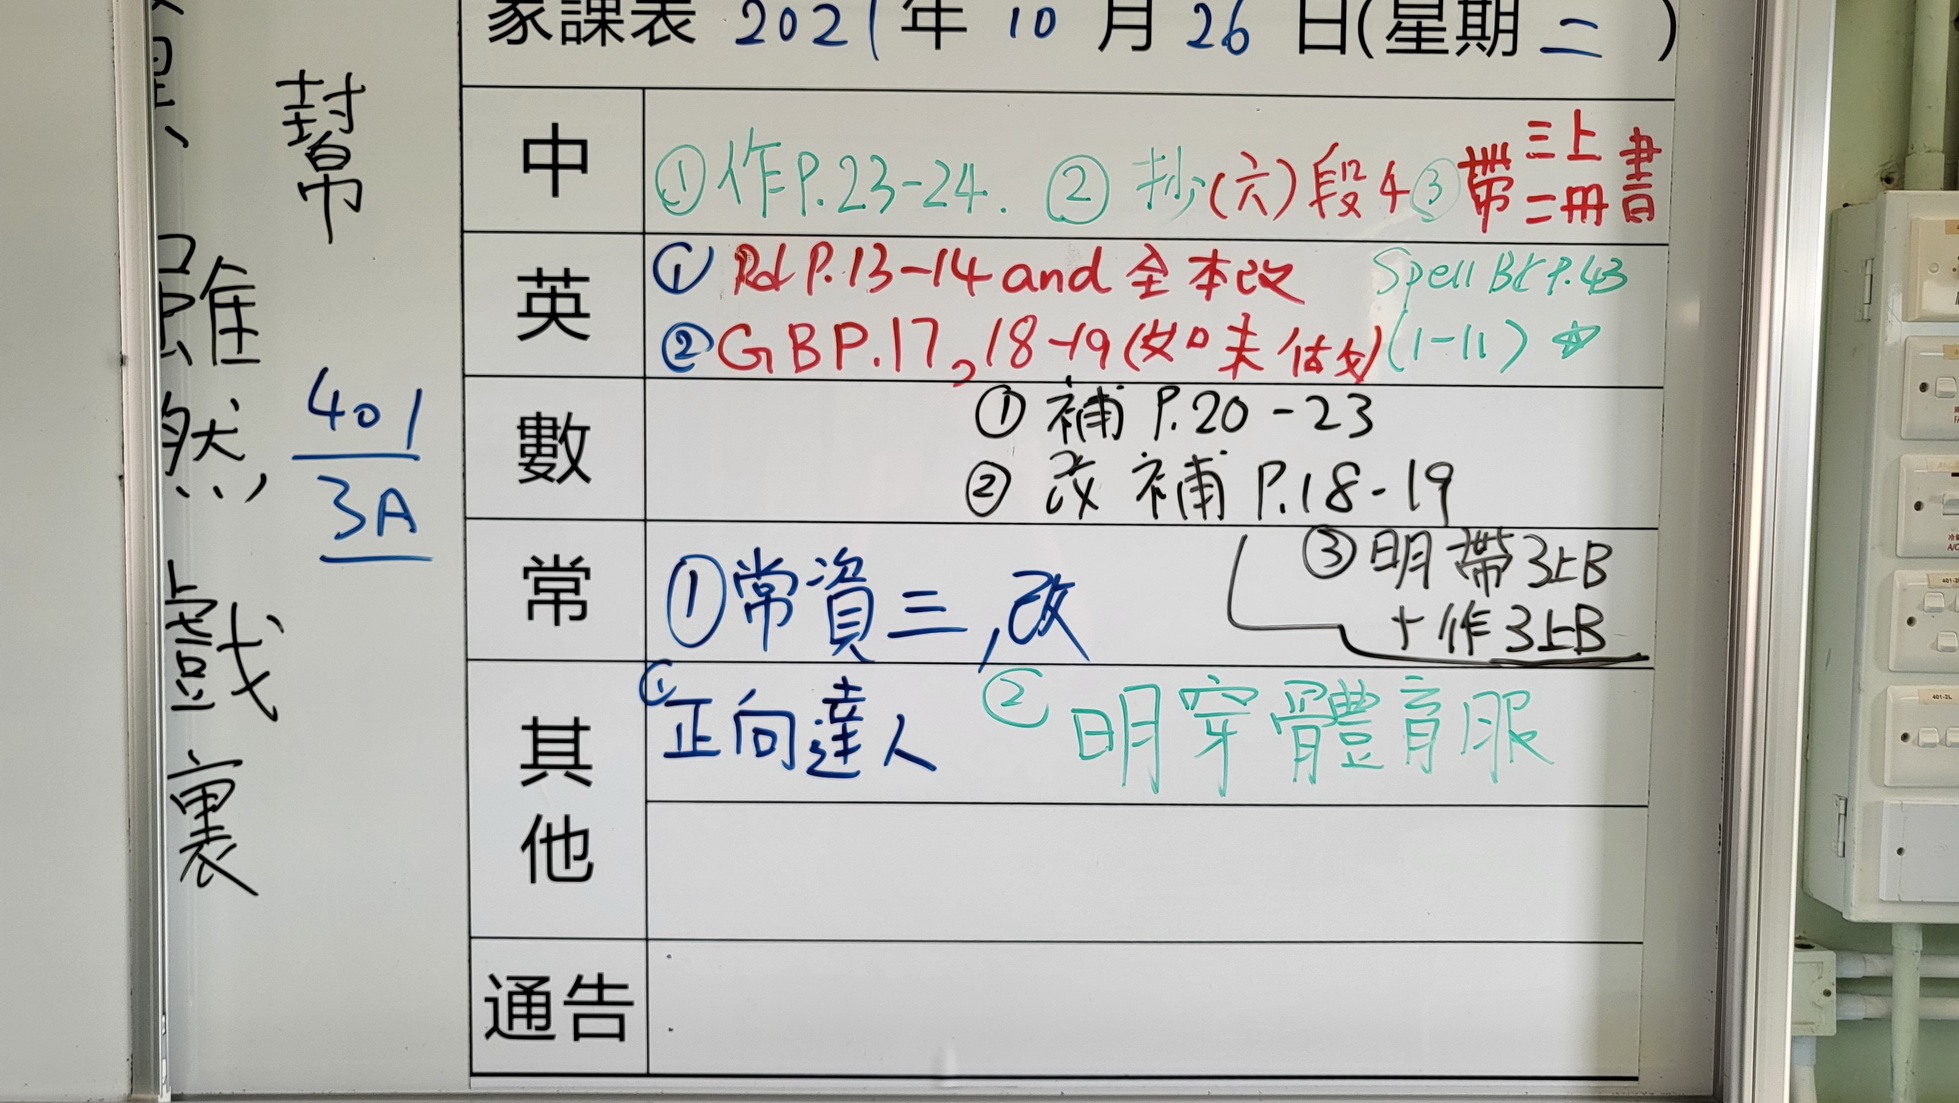 家課表 2021年 10月 26日(星期二)
中
①作P.23-24. ② 抄(六)段4 ③帶三上二冊書
英
① Rd P.13-14 and 全本改
② GB P.17, 18-19(如未做好)
Spell Bk P.43
(1-11) ☆
數
① 補 P.20-23
② 改 補 P.18-19
③ 明帶3上B
+作3上B
常
①常資三,改
其他
①正向達人 ② 明穿體育服
通告
幫
雖然,
戲
裏
401
3A